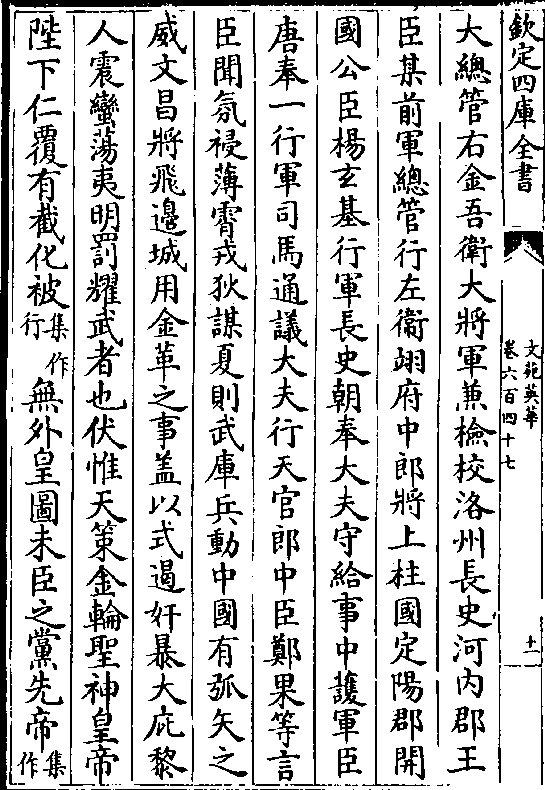 欽定四庫全書
文苑英華
卷六百四十七
十一
大總管右金吾衛大將軍兼檢校洛州長史河内郡王
臣某前軍總管行左衞翊府中郎將上柱國定陽郡開
國公臣楊玄基行軍長史朝奉大夫守給事中護軍臣
唐奉一行軍司馬通議大夫行天官郎中臣鄭果等言
臣聞氛祲薄霄戎狄謀夏則武庫兵動中國有弧矢之
威文昌將飛邊城用金革之事盖以式遏奸暴大庇黎
人震蠻蕩夷明罰耀武者也伏惟天策金輪聖神皇帝
陛下仁覆有截化被集作行無外皇圖未臣之黨先帝集作